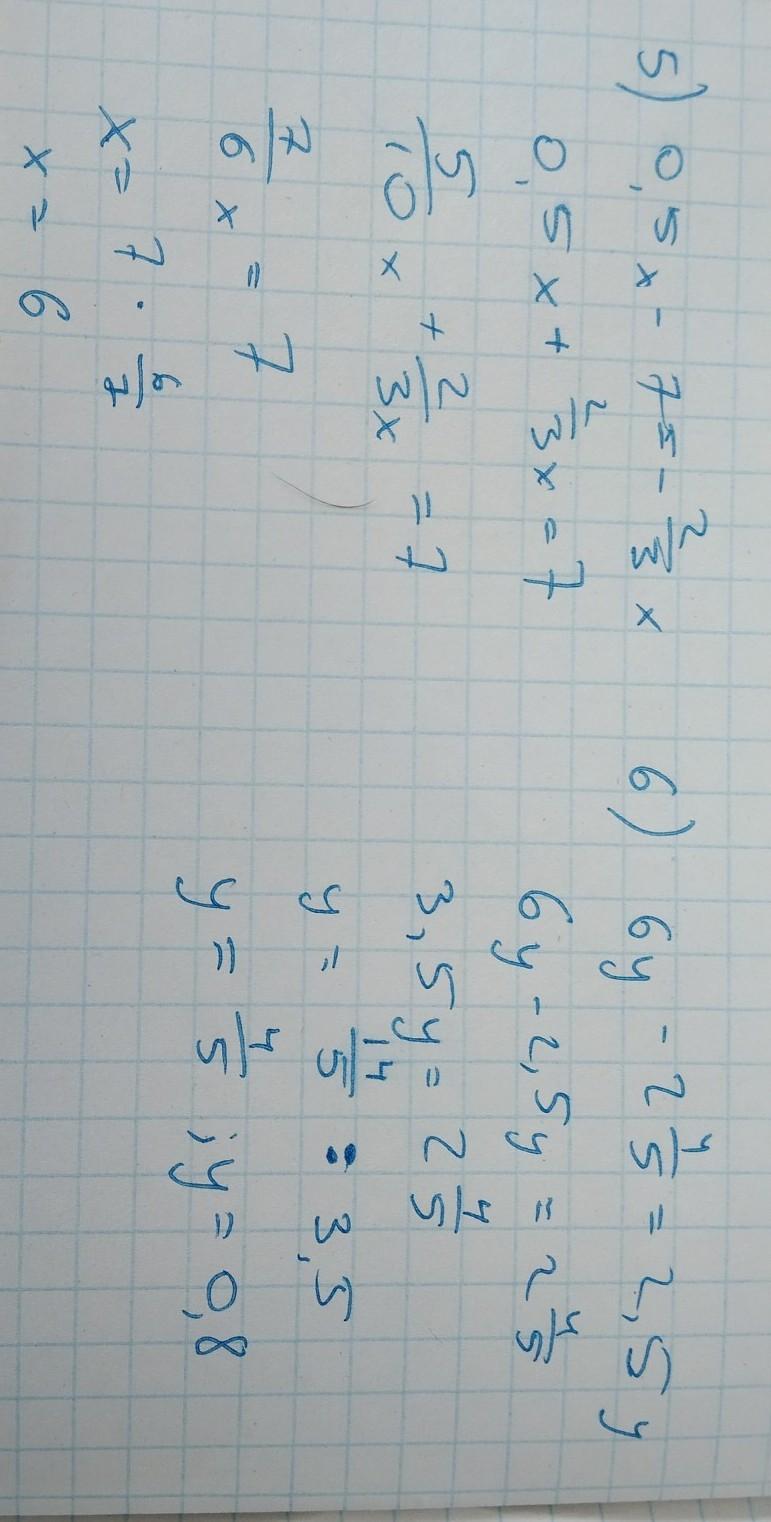 5) 0,5x - 7 = - 2/3 x
0,5x + 2/3 x = 7
5/10 x + 2/3x = 7
7/6 x = 7
x = 7 · 6/7
x = 6
6) 6y - 2 4/5 = 2,5y
6y - 2,5y = 2 4/5
3,5y = 2 4/5
y = 14/5 : 3,5
y = 4/5 ; y = 0,8